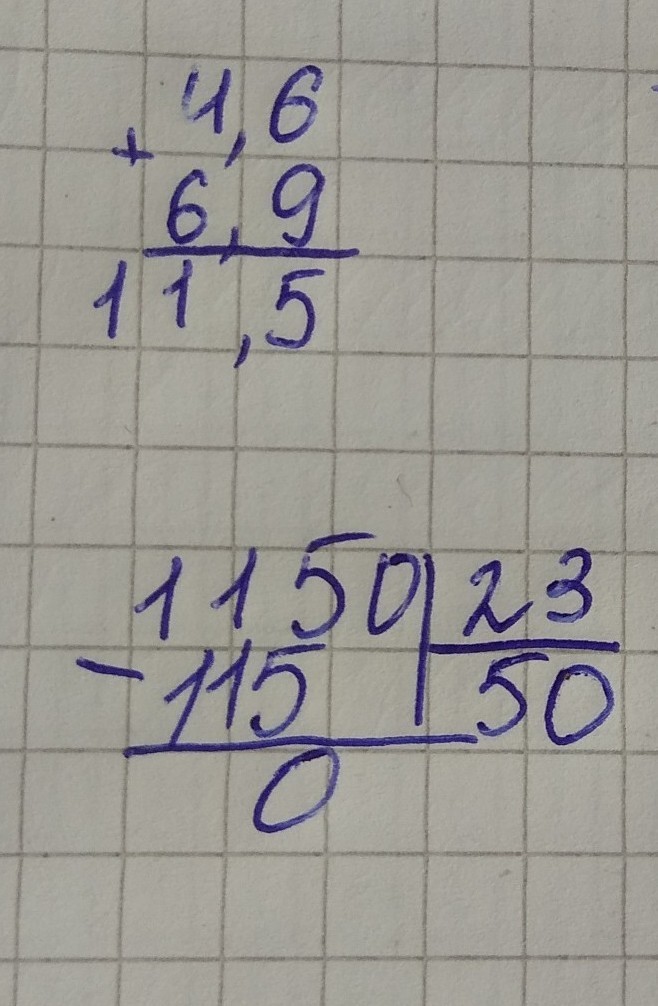 + 4,6
6,9
11,5
1150 23
-115 50
0